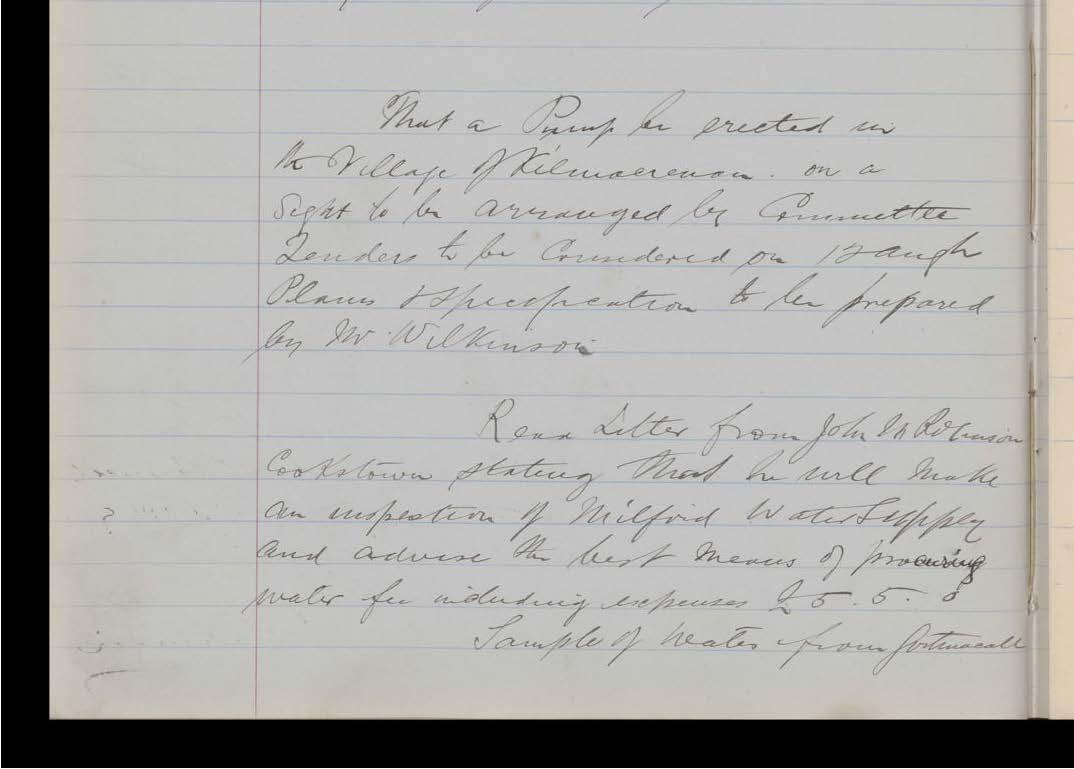 That a Pump be erected in
the Village of Kilmacrenan. on a
Sight to be arranged by Committee
Tenders to be Considered on 12 Augh
Plans & Specification to be prepared
by Mr Wilkinson
Read Letter from John M Robinson
Cookstown stating that he will make
an inspection of Milford Water Supply
and advise the best means of procuring
water fee including expenses £5.5.0
Sample of water from Gortnacall